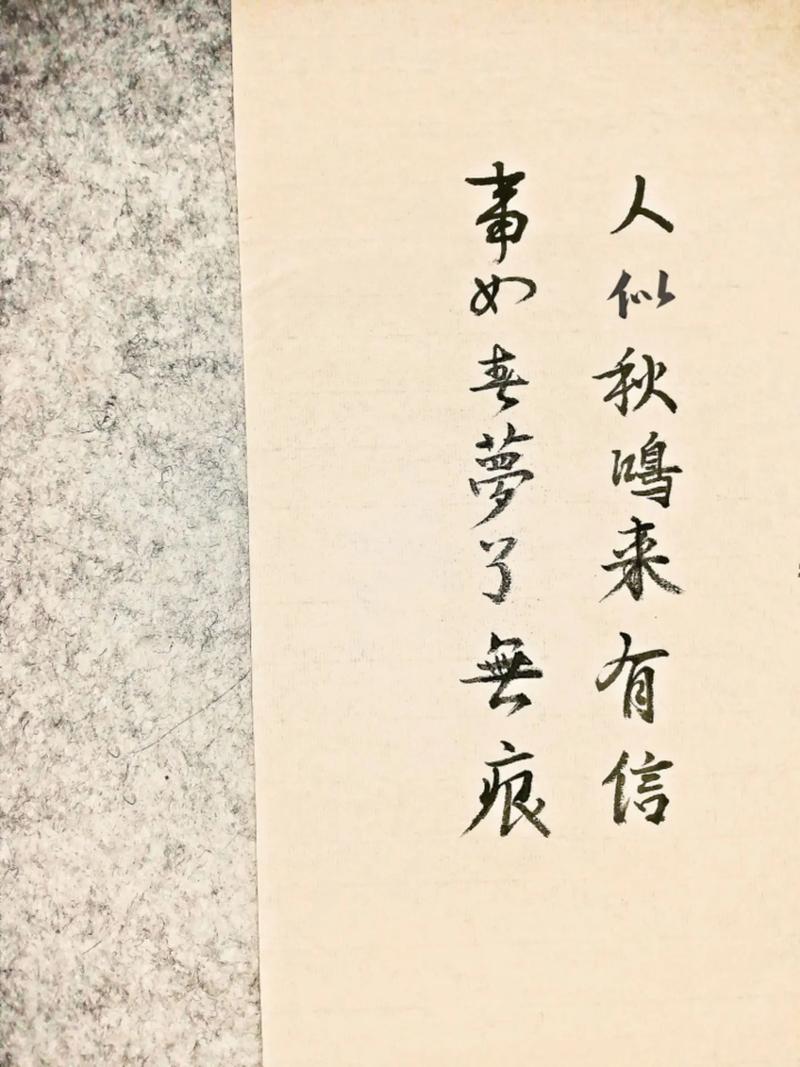 人似秋鳴来有信
事如春夢了無痕